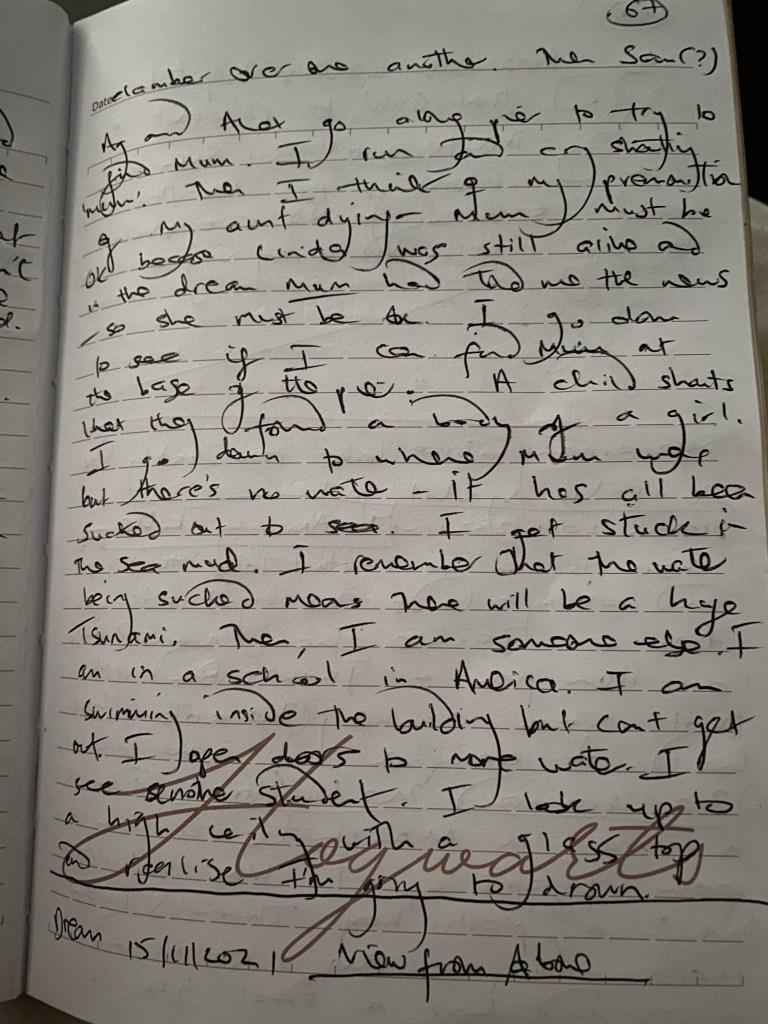 67
Date
clamber over one another. Then Sean(?)
and Alex go along pier to try to
find Mum. I run and cry shouting
'mum'. Then I think of my premonition
of my aunt dying - Mum must be
ok because Linda was still alive and
in the dream Mum had told me the news
so she must be ok. I go down
to see if I can find Mum at
the base of the pier. A child shouts
that they found a body of a girl.
I go down to where Mum was
but there's no water - it has all been
sucked out to sea. I get stuck in
the sea mud. I remember that the water
being sucked means there will be a huge
Tsunami. Then, I am someone else. I
am in a school in America. I am
swimming inside the building but can't get
out. I open doors to more water. I
see another student. I look up to
a high ceiling with a glass top
and realise I'm going to drown.
Hogwarts
Dream 15/11/2021 View from Above